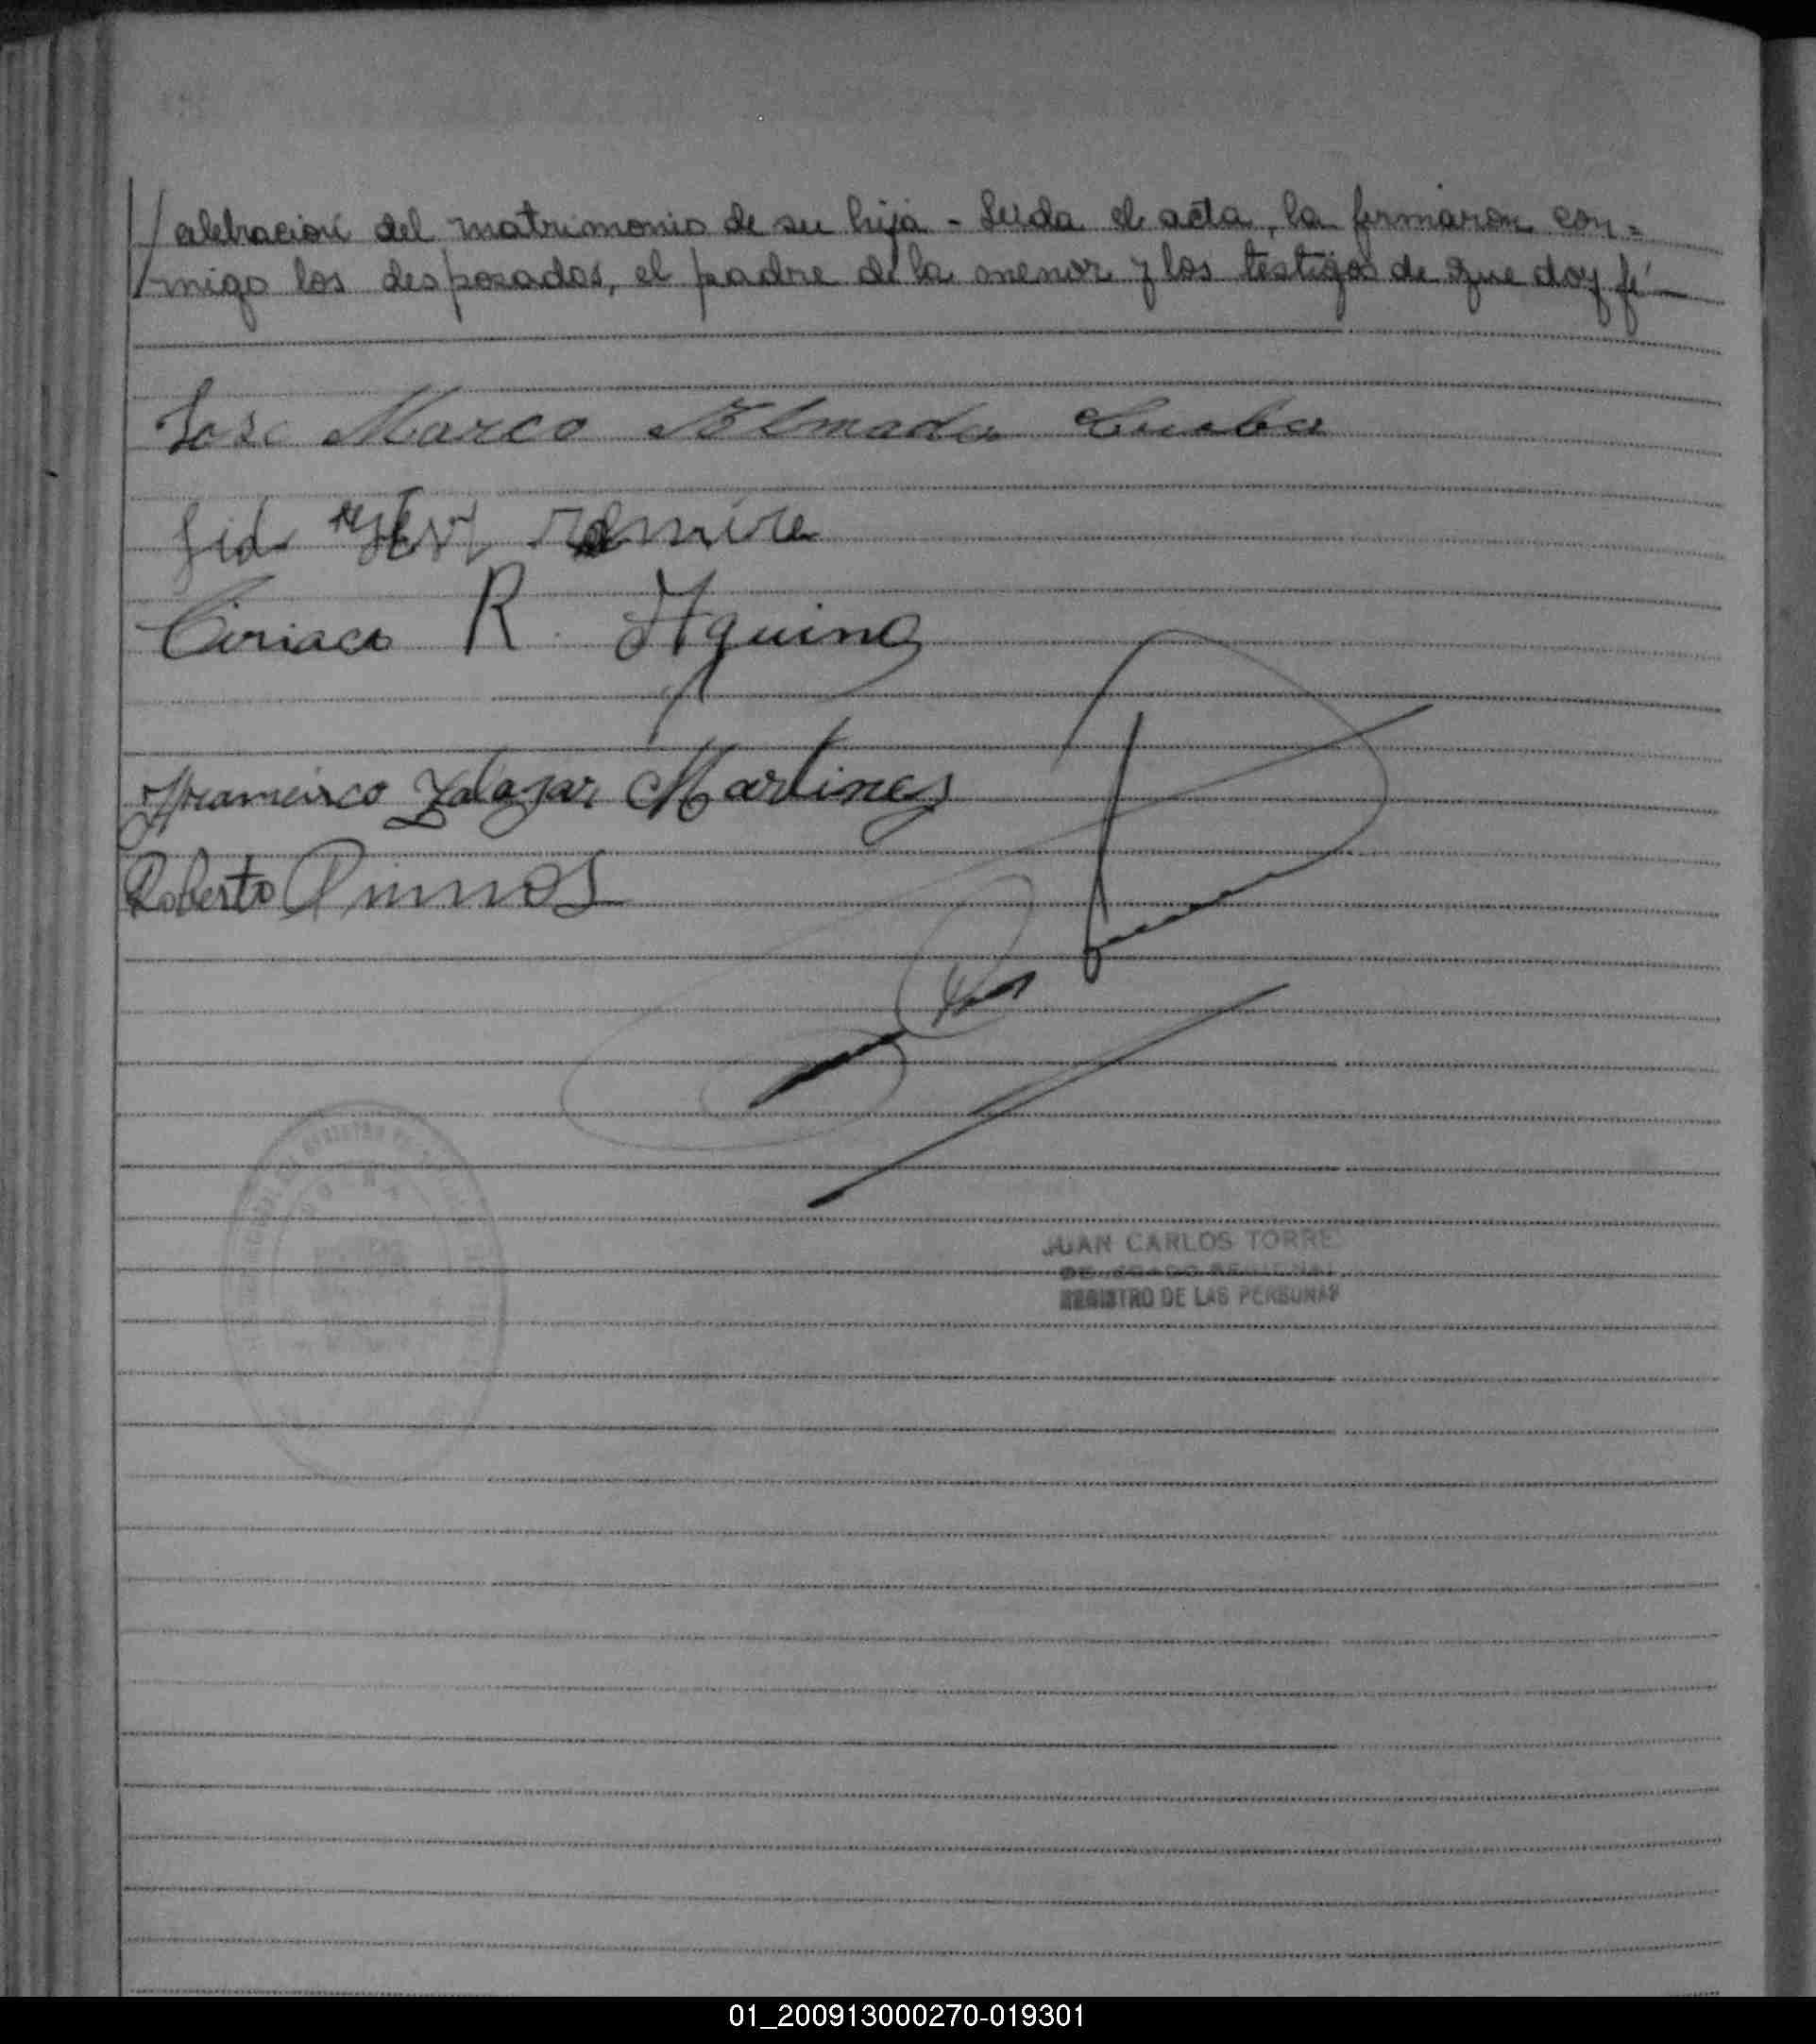 /celebración del matrimonio de su hija - Leida el acta, la firmaron con=
/migo los desposados, el padre de la menor y los testigos de que doy fé -
Jose Marco Almada
Ciriaco R. Aquino
Francisco Zalazar Martinez
Roberto
JUAN CARLOS TORRE
REGISTRO DE LAS PERSONAS
01_200913000270-019301